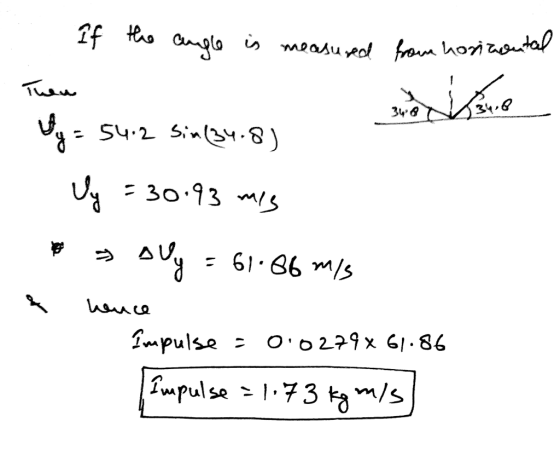 If the angle is measured from horizontal
Then
34.8 34.8
Vy = 54.2 Sin(34.8)
Vy = 30.93 m/s
⇒ ΔVy = 61.86 m/s
& hence
Impulse = 0.0279 x 61.86
Impulse = 1.73 kg m/s